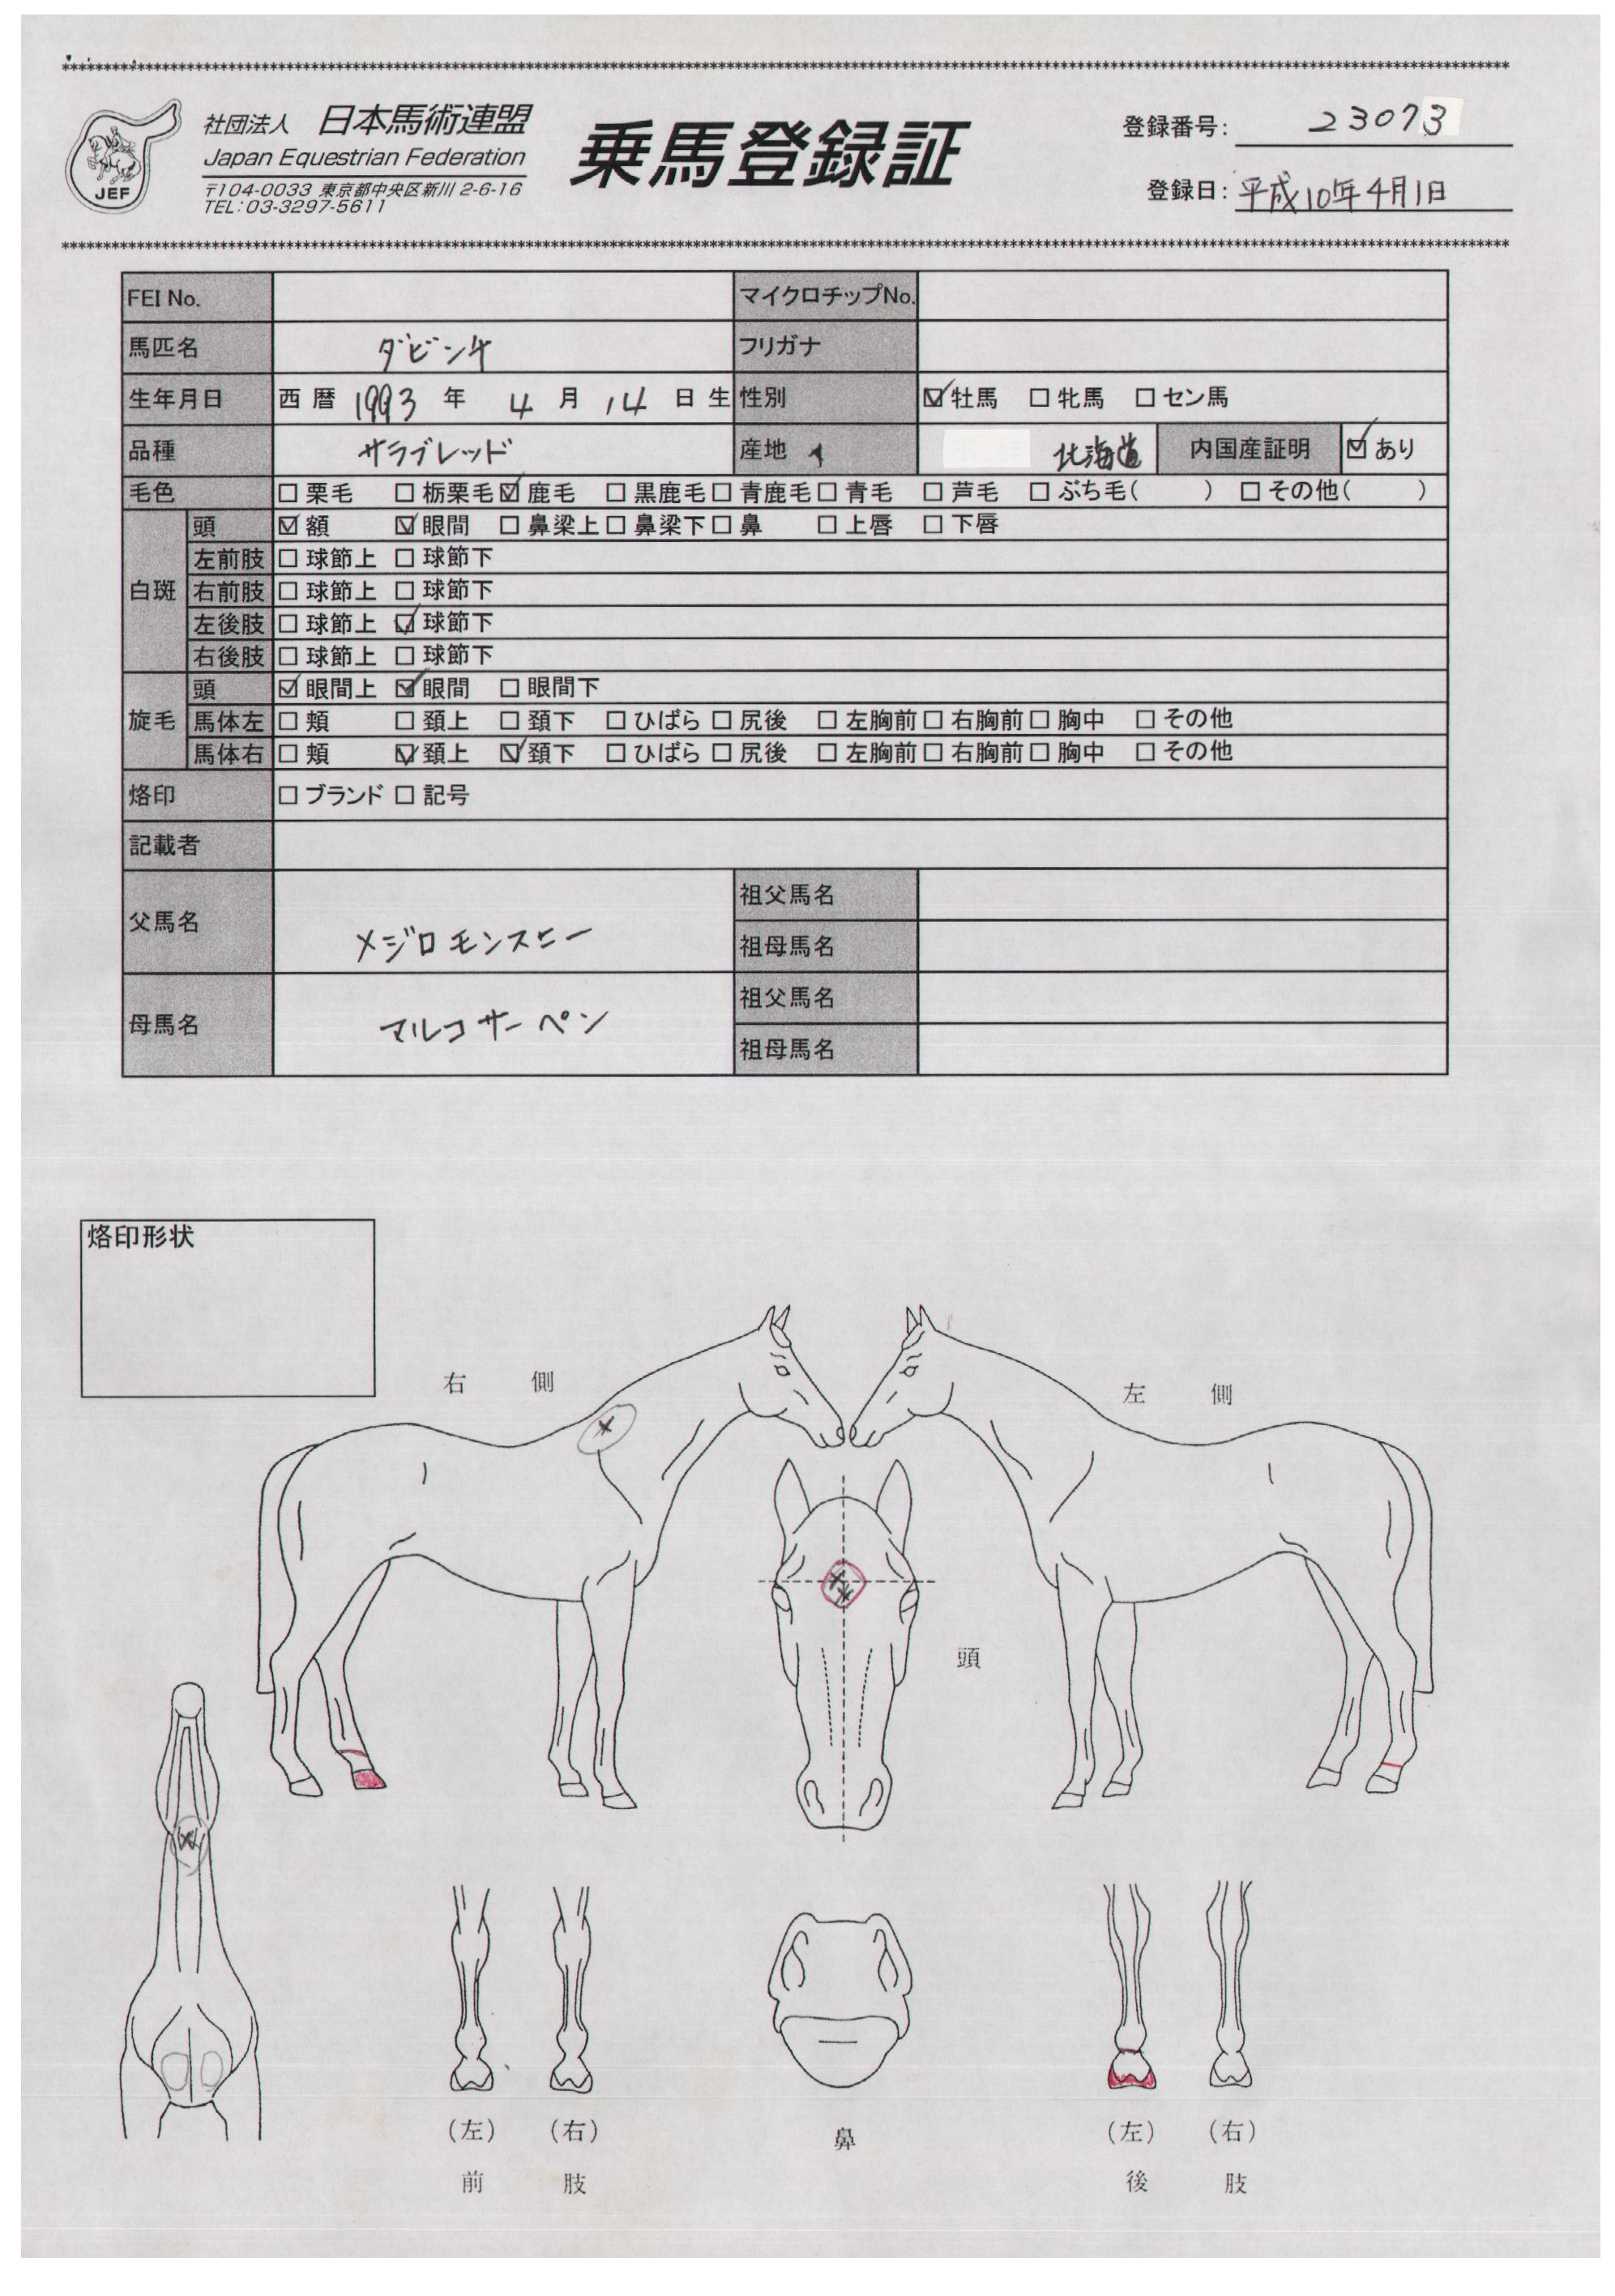 社団法人 日本馬術連盟
Japan Equestrian Federation
〒104-0033 東京都中央区新川 2-6-16
TEL:03-3297-5611
JEF
乗馬登録証
登録番号: 23073
登録日: 平成10年4月1日
FEI No. マイクロチップNo.
馬匹名 ダビンチ フリガナ
生年月日 西暦 1993 年 4 月 14 日生 性別 ☑牡馬 □牝馬 □セン馬
品種 サラブレッド 産地 北海道 内国産証明 ☑あり
毛色 □栗毛 □栃栗毛 ☑鹿毛 □黒鹿毛 □青鹿毛 □青毛 □芦毛 □ぶち毛( ) □その他( )
白斑 頭 ☑額 ☑眼間 □鼻梁上 □鼻梁下 □鼻 □上唇 □下唇
左前肢 □球節上 □球節下
右前肢 □球節上 □球節下
左後肢 □球節上 ☑球節下
右後肢 □球節上 □球節下
旋毛 頭 ☑眼間上 ☑眼間 □眼間下
馬体左 □頬 □頚上 □頚下 □ひばら □尻後 □左胸前 □右胸前 □胸中 □その他
馬体右 □頬 ☑頚上 ☑頚下 □ひばら □尻後 □左胸前 □右胸前 □胸中 □その他
烙印 □ブランド □記号
記載者
父馬名 メジロモンスニー 祖父馬名
祖母馬名
母馬名 マルコサーペン 祖父馬名
祖母馬名
烙印形状
右側 左側
頭
(左) (右) 鼻 (左) (右)
前 肢 後 肢